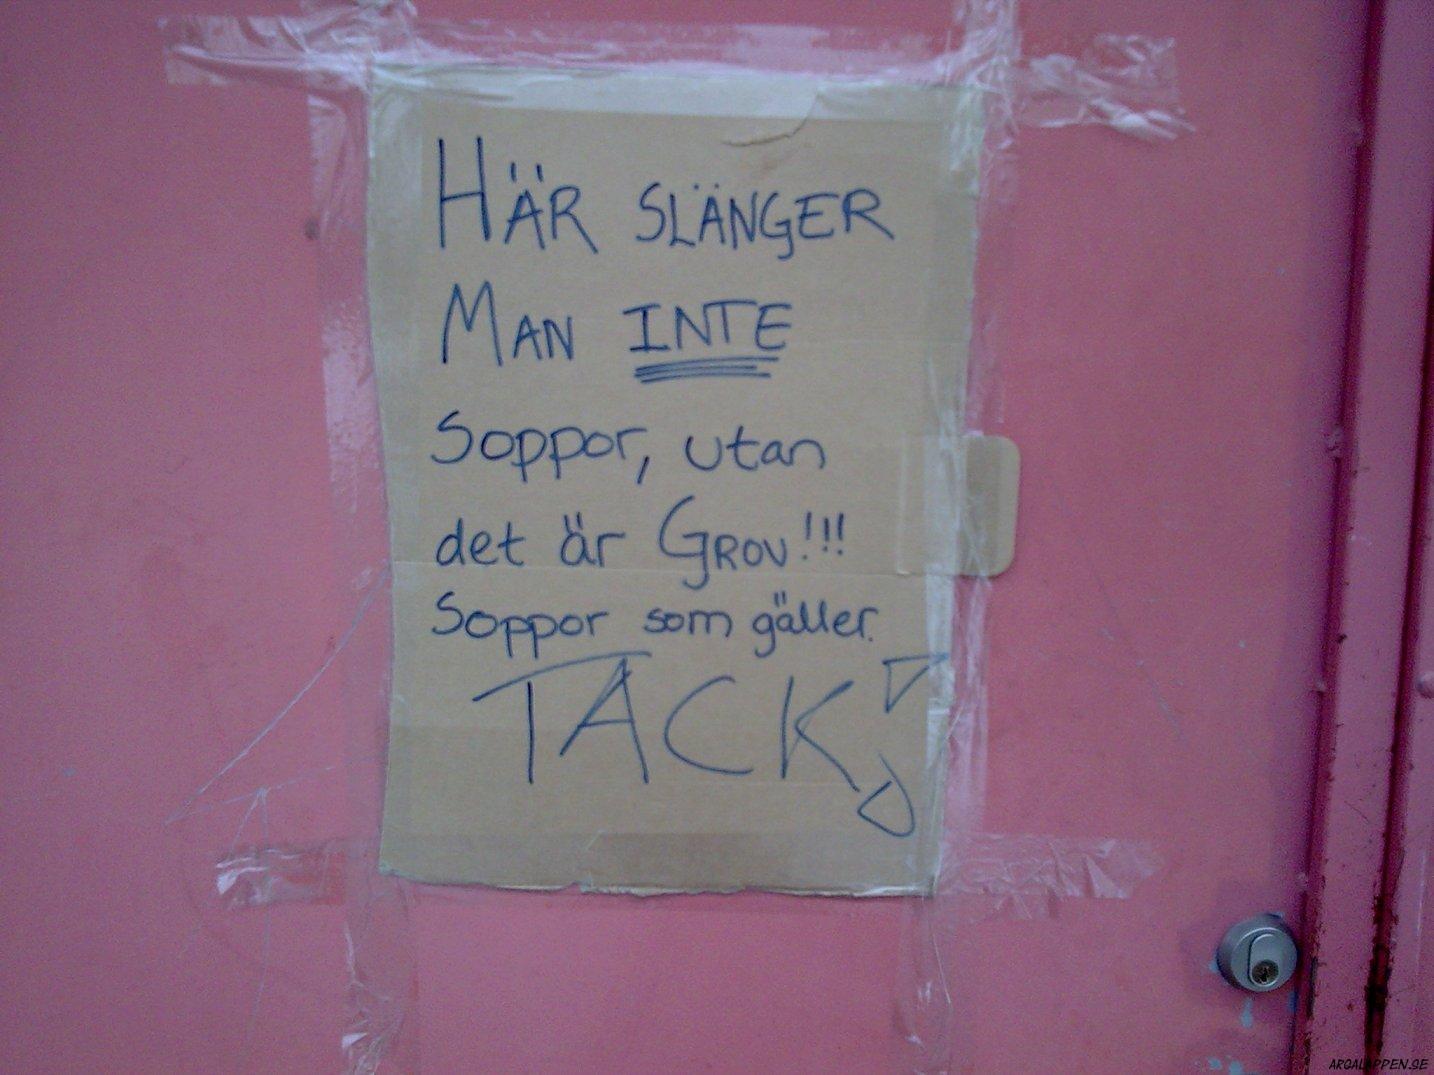 HÄR SLÄNGER
MAN INTE
Soppor, utan
det är GROV!!!
Soppor som gäller.
TACK!
ARGALAPPEN.SE